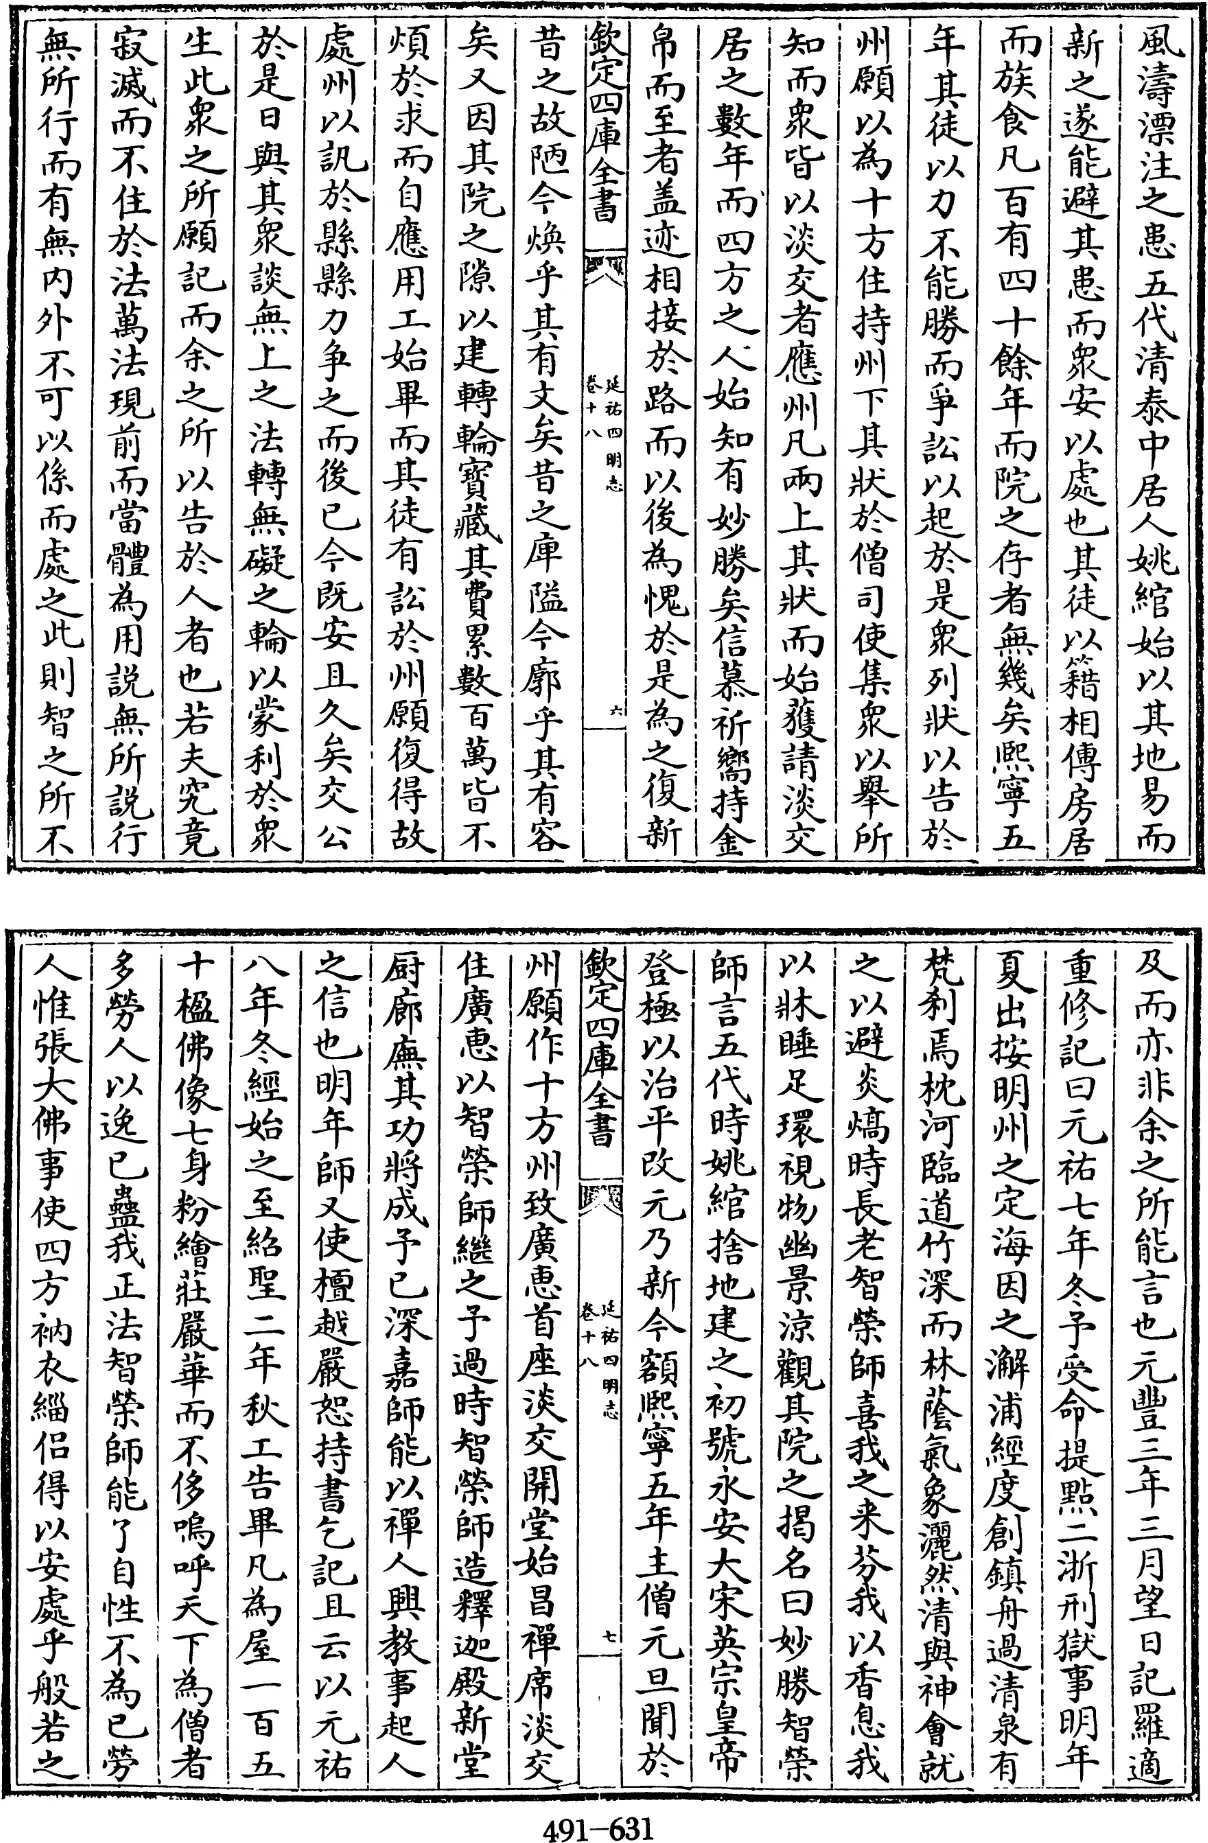 風濤漂注之患五代清泰中居人姚綰始以其地易而
新之遂能避其患而衆安以處也其徒以籍相傳房居
而族食凡百有四十餘年而院之存者無幾矣熈寧五
年其徒以力不能勝而爭訟以起於是衆列狀以告於
州願以為十方住持州下其狀於僧司使集衆以舉所
知而衆皆以淡交者應州凡兩上其狀而始獲請淡交
居之數年而四方之人始知有妙勝矣信慕祈嚮持金
帛而至者盖迹相接於路而以後為愧於是為之復新
欽定四庫全書
延祐四明志
卷十八
六
昔之故陋今煥乎其有文矣昔之庫隘今廓乎其有容
矣又因其院之隙以建轉輪寳藏其費累數百萬皆不
煩於求而自應用工始畢而其徒有訟於州願復得故
處州以訊於縣縣力争之而後已今既安且久矣交公
於是日與其衆談無上之法轉無礙之輪以蒙利於衆
生此衆之所願記而余之所以告於人者也若夫究竟
寂滅而不住於法萬法現前而當體為用説無所説行
無所行而有無内外不可以係而處之此則智之所不
及而亦非余之所能言也元豐三年三月望日記羅適
重修記曰元祐七年冬予受命提點二浙刑獄事明年
夏出按明州之定海因之澥浦經度創鎮舟過清泉有
梵刹焉枕河臨道竹深而林蔭氣象灑然清與神會就
之以避炎熇時長老智榮師喜我之来芬我以香息我
以牀睡足環視物幽景涼觀其院之揭名曰妙勝智榮
師言五代時姚綰捨地建之初號永安大宋英宗皇帝
登極以治平改元乃新今額熈寧五年主僧元旦聞於
欽定四庫全書
延祐四明志
卷十八
七
州願作十方州致廣惠首座淡交開堂始昌禪席淡交
住廣惠以智榮師繼之予過時智榮師造釋迦殿新堂
厨廊廡其功將成予已深嘉師能以禪人興教事起人
之信也明年師又使檀越嚴恕持書乞記且云以元祐
八年冬經始之至紹聖二年秋工告畢凡為屋一百五
十楹佛像七身粉繪莊嚴華而不侈嗚呼天下為僧者
多勞人以逸已蠱我正法智榮師能了自性不為已勞
人惟張大佛事使四方衲衣緇侶得以安處乎般若之
491-631